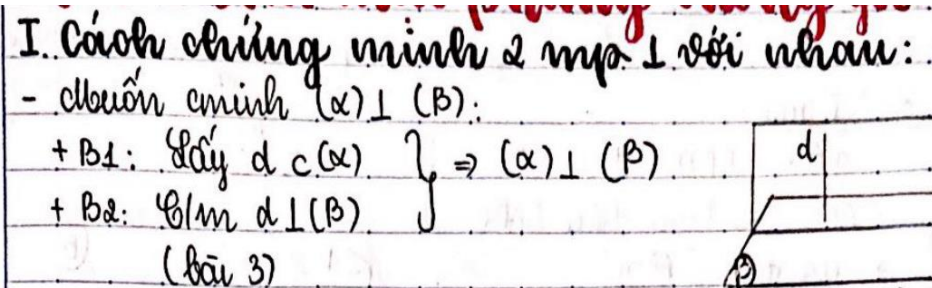 I. Cách chứng minh 2 mp ⊥ với nhau:
- Muốn cminh (α) ⊥ (β):
+ B1: Lấy d ⊂ (α) } ⇒ (α) ⊥ (β)
+ B2: C/m d ⊥ (β)
(bài 3)
d
β